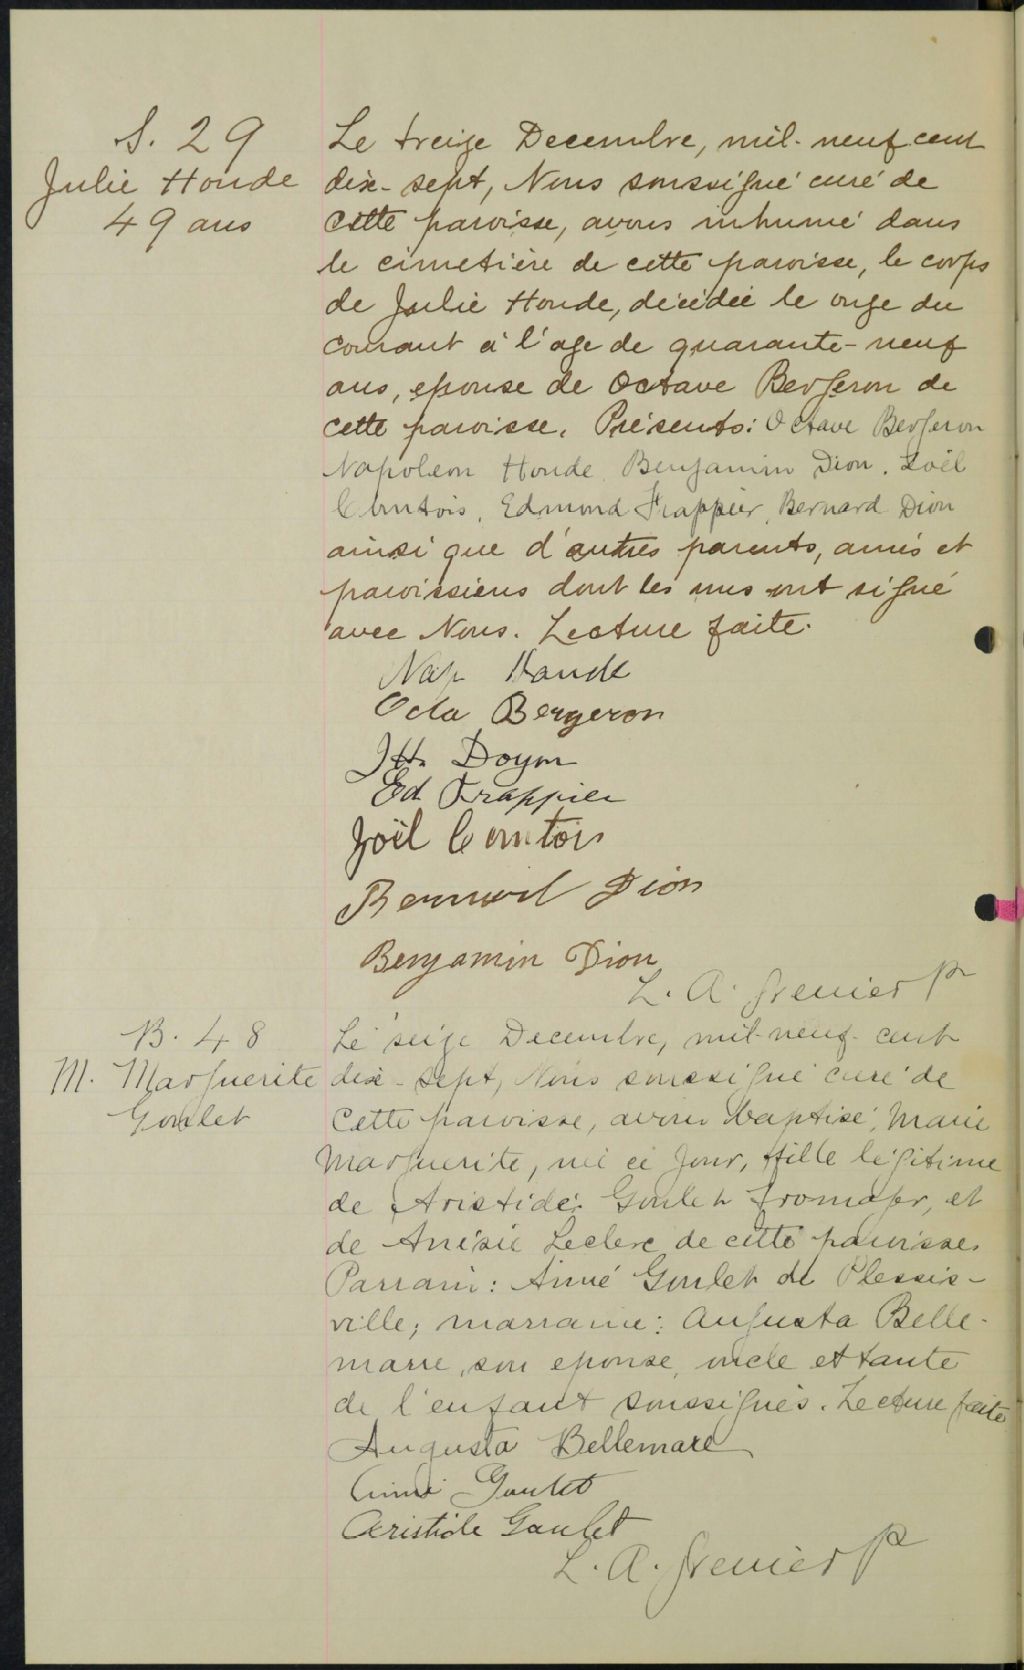 S. 29
Julie Houde
49 ans
Le treize Decembre, mil-neuf cent
dix-sept, Nous soussigné curé de
cette paroisse, avons inhumé dans
le cimetière de cette paroisse, le corps
de Julie Houde, décédée le onze du
courant à l'age de quarante-neuf
ans, epouse de Octave Bergeron de
cette paroisse. Présents: Octave Bergeron
Napoleon Houde. Benjamin Dion. Joël
Comtois. Edmond Frappier, Bernard Dion
ainsi que d'autres parents, amis et
paroissiens dont les uns ont signé
avec Nous. Lecture faite.
Nap Houde
Octa Bergeron
Doyon
Ed Frappier
Joël Comtois
Bernard Dion
Benjamin Dion
L. A. Grenier Ptr
B. 48
M. Marguerite
Goulet
Le seize Decembre, mil-neuf-cent
dix-sept, Nous soussigné curé de
cette paroisse, avons baptisé, Marie
Marguerite, née ce jour, fille légitime
de Aristide Goulet fromager, et
de Anésie Leclerc de cette paroisse.
Parrain: Aimé Goulet de Plessis-
ville; marraine: Augusta Belle-
mare, son epouse, oncle et tante
de l'enfant soussignés. Lecture faite
Augusta Bellemare
Aimé Goulet
Aristide Goulet
L. A. Grenier Ptr